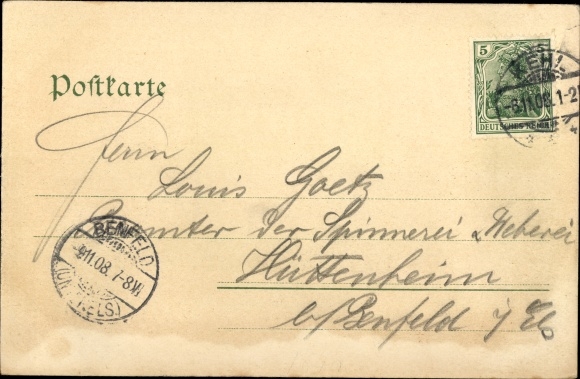 5
DEUTSCHES REICH
KEHL
-8.11.08. 1-2
Postkarte
Herrn
Louis Goetz
Beamter der Spinnerei & Weberei
Hüttenheim
b/Benfeld i/Els
BENFELD
9.11.08. 7-8V
(ELS.)